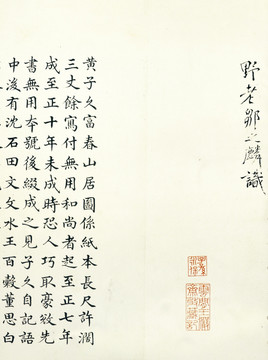 野老鄒之麟識
黃子久富春山居圖係紙本長尺許濶
三丈餘寫付無用和尚者起至正七年
成至正十年未成時恐人巧取豪敓先
書無用夲號後綴成之見子久自記語
中浚有沈石田文文水王百穀董思白